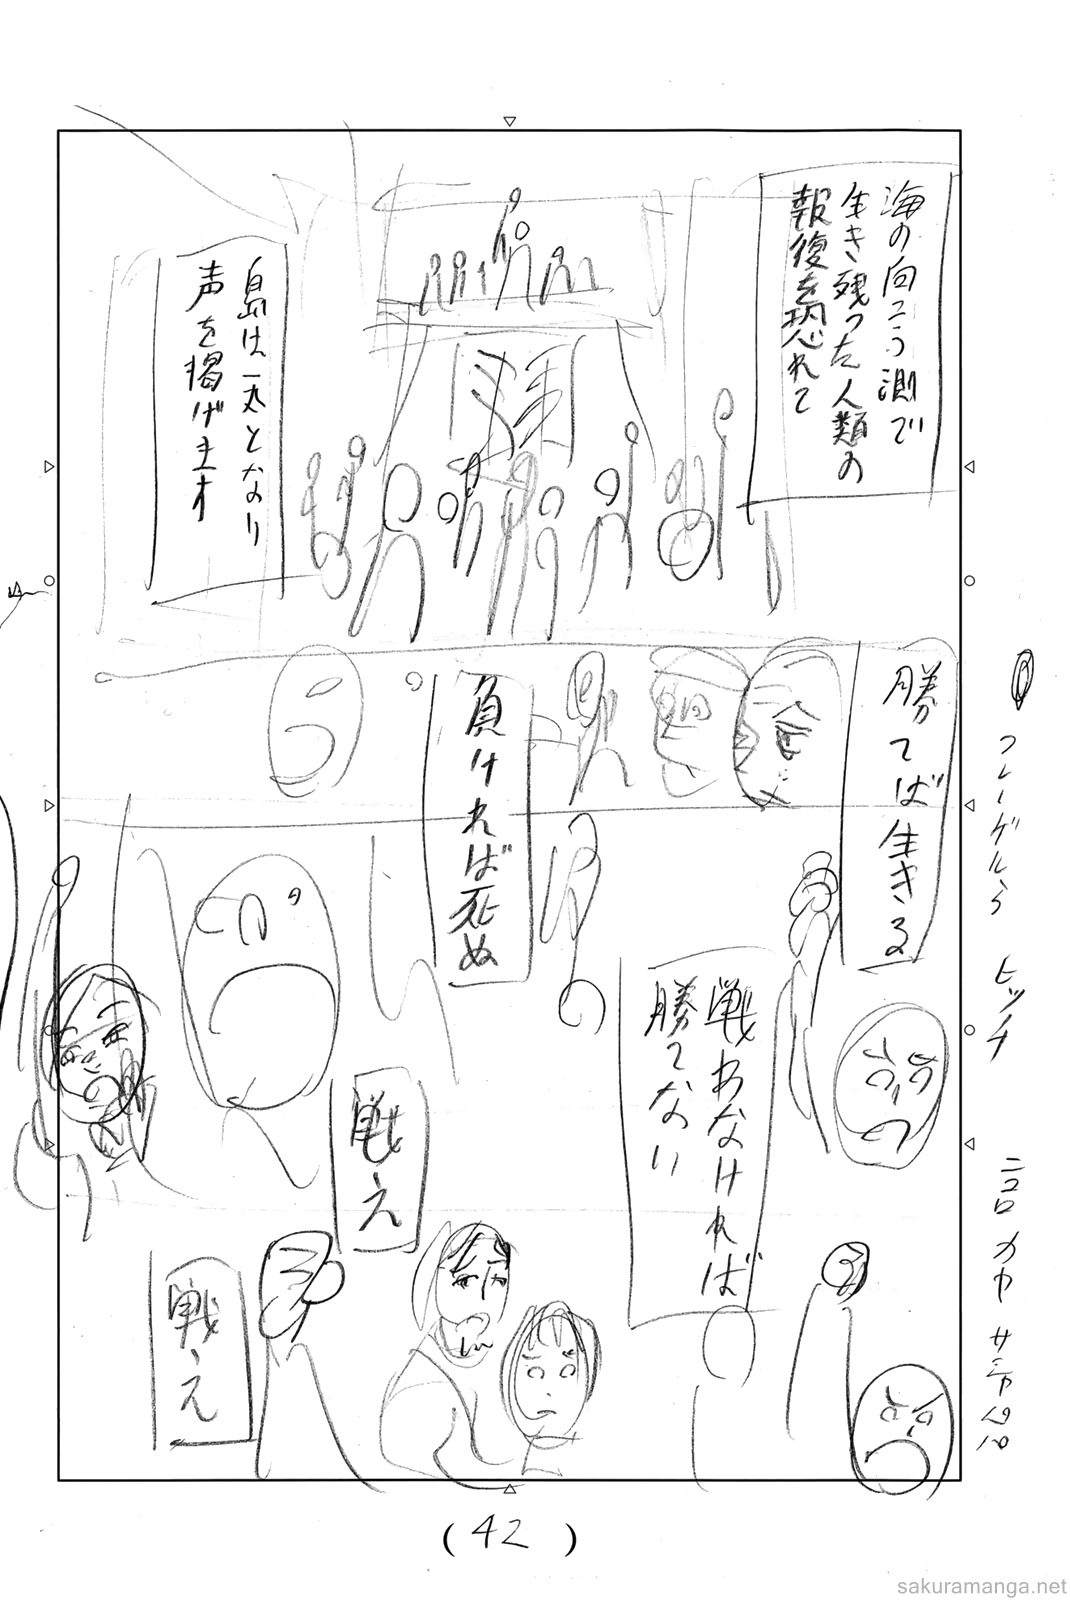 海の向こう側で
生き残った人類の
報復を恐れて
島は一丸となり
声を揚げます
勝てば生きる
負ければ死ぬ
戦わなければ
勝てない
戦え
戦え
フレーゲルら ヒッチ
ニコロ カヤ サシャパパ
(42)
sakuramanga.net